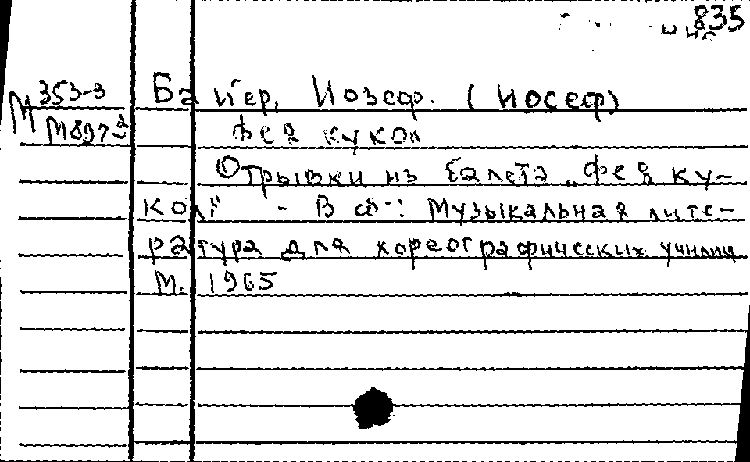 835
М 353-3
М897-2
Байер, Иозеф. (Иосеф)
Фея кукол
Отрывки из балета „Фея ку-
кол" - В сб.: Музыкальная лите-
ратура для хореографических училищ
М. 1965